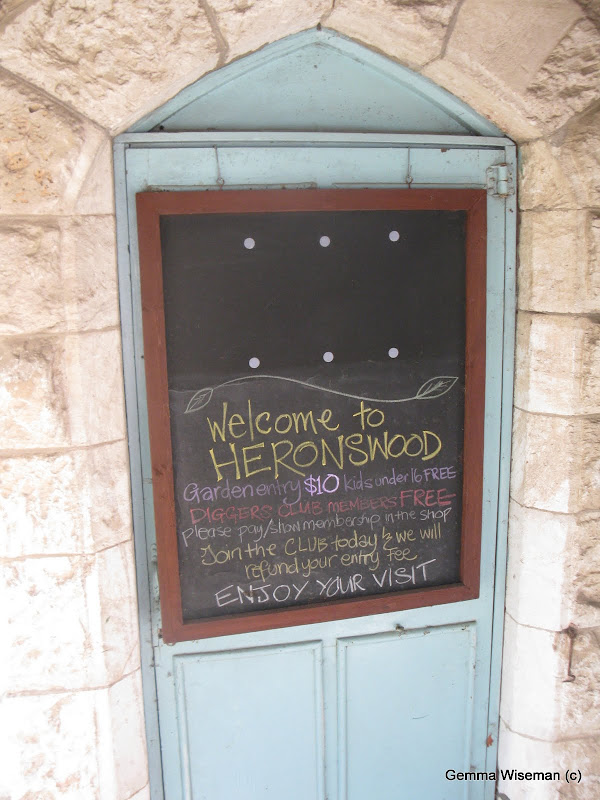 Welcome to
HERONSWOOD
Garden entry $10 kids under 16 FREE
DIGGERS CLUB MEMBERS FREE
please pay/show membership in the shop
Join the CLUB today & we will
refund your entry fee
ENJOY YOUR VISIT
Gemma Wiseman (c)